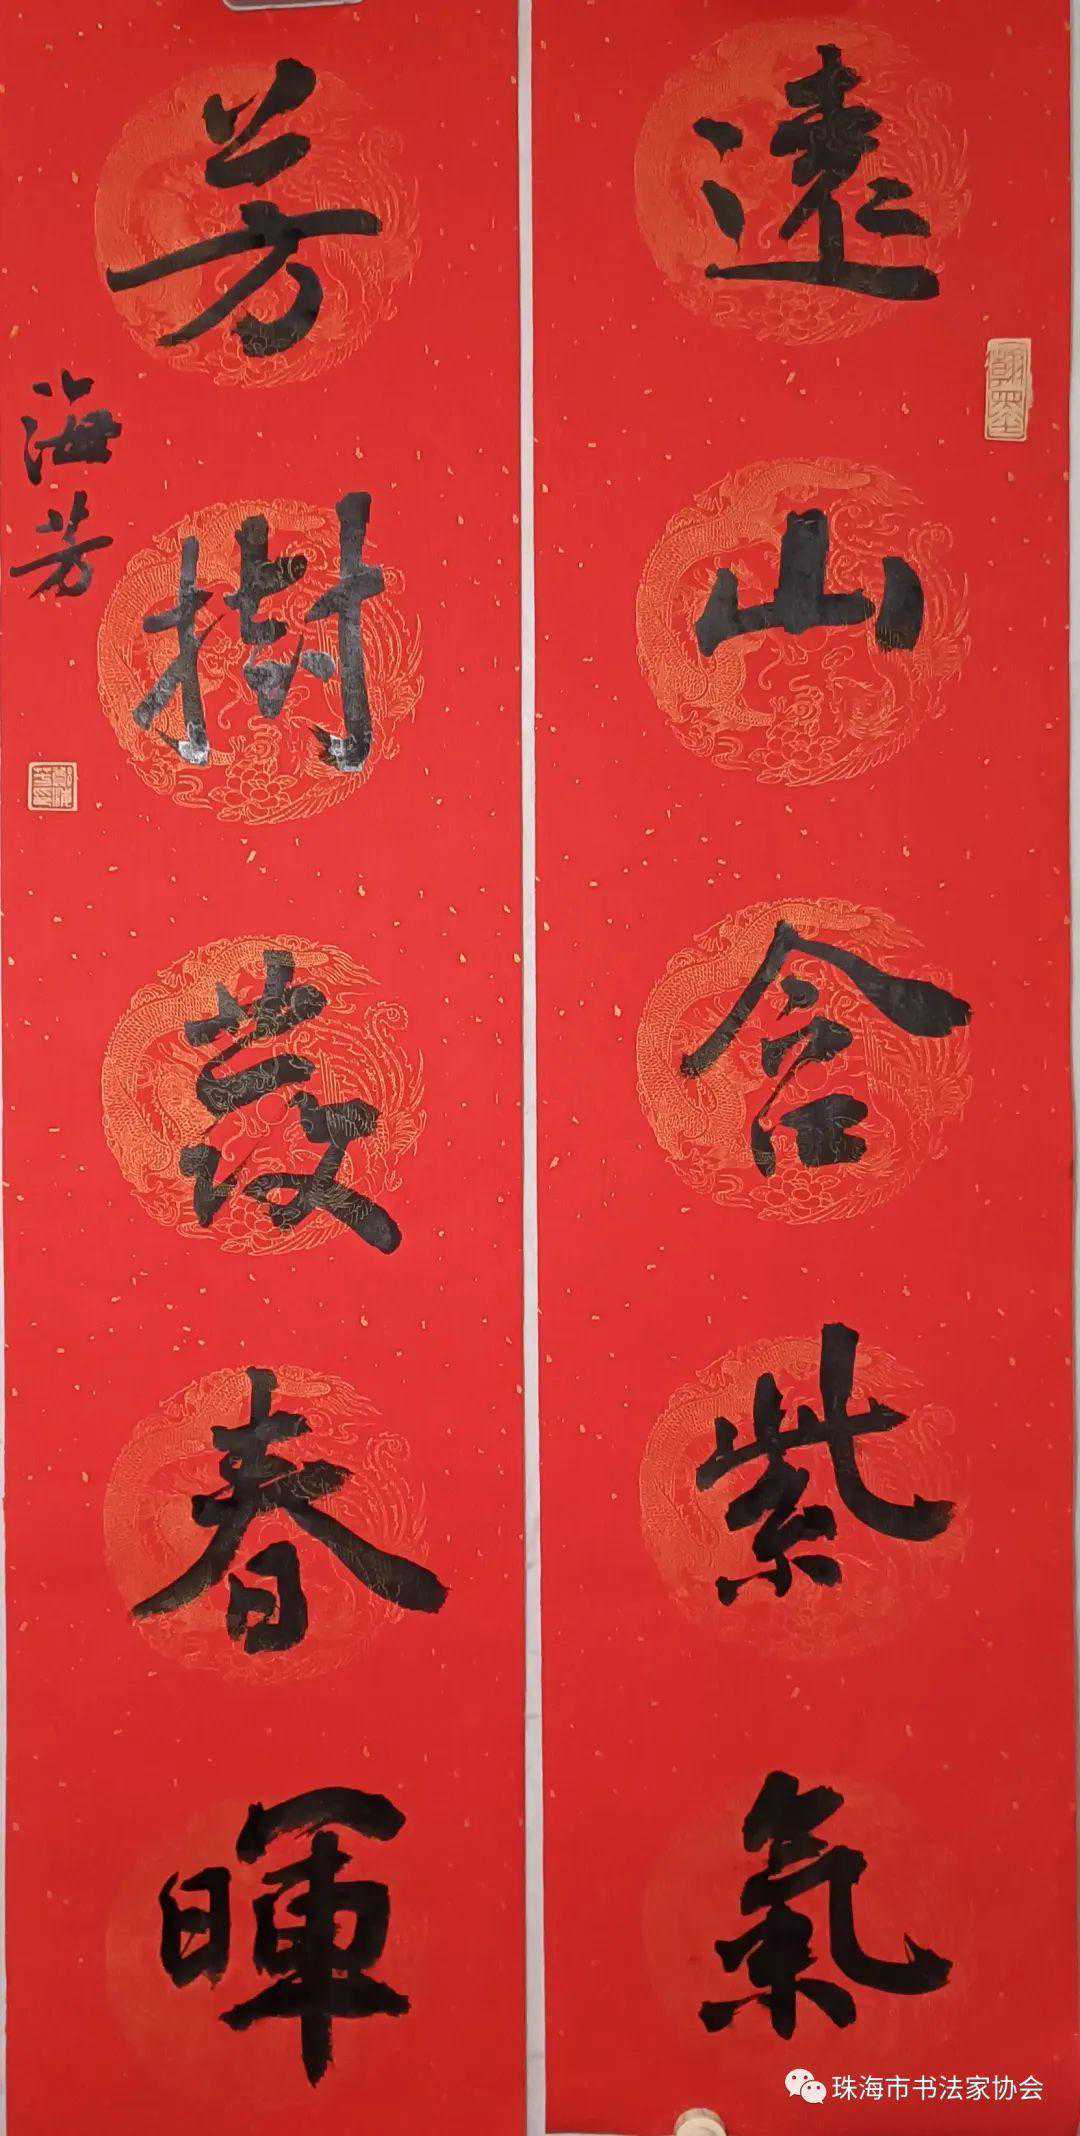 遠山含紫氣
芳樹發春暉
海芳
翰墨
珠海市书法家协会